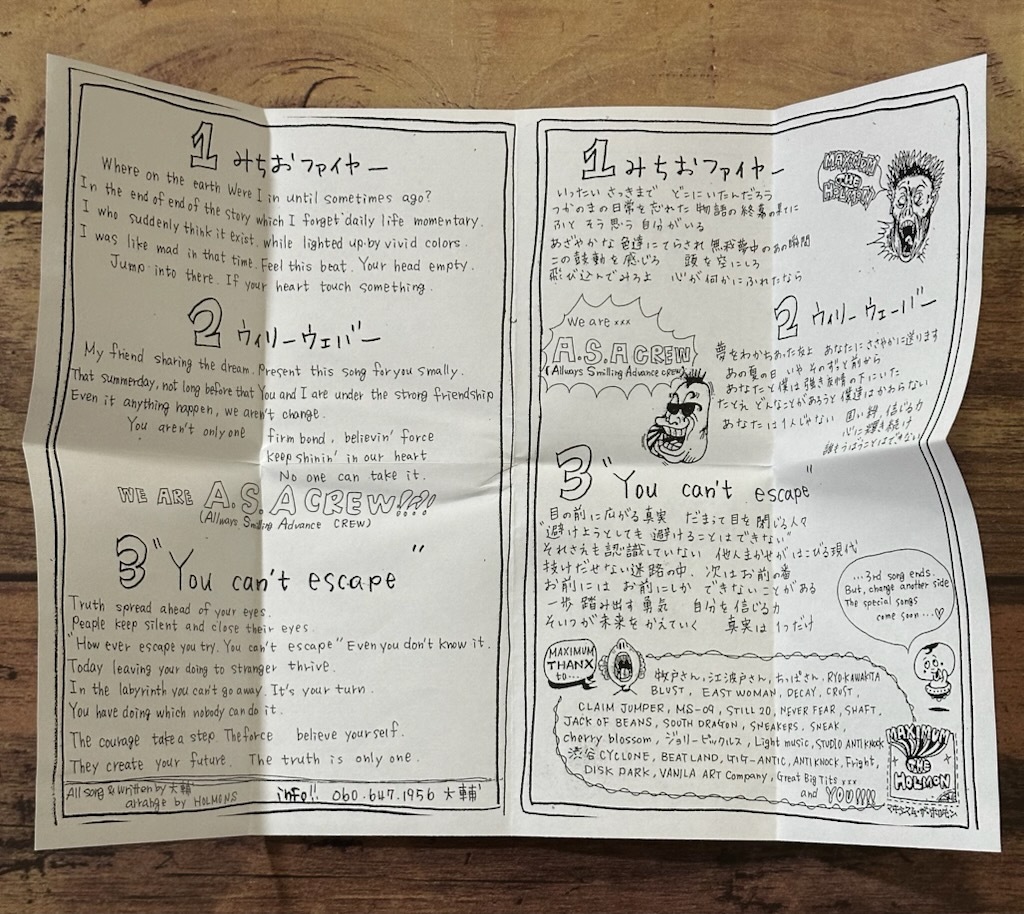 1 みちおファイヤー
Where on the earth Were I in until sometimes ago?
In the end of end of the story which I forget daily life momentary.
I who suddenly think it exist. while lighted up by vivid colors.
I was like mad in that time. Feel this beat. Your head empty.
Jump into there. If your heart touch something.
2 ウィリーウェバー
My friend sharing the dream. Present this song for you smally.
That summerday, not long before that You and I are under the strong friendship
Even it anything happen, we aren't change.
You aren't only one firm bond, believin' force
keep shinin' in our heart
No one can take it.
WE ARE A.S.A CREW!!!!
(Allways Smiling Advance CREW)
3 "You can't escape"
Truth spread ahead of your eyes.
Peaple keep silent and close their eyes.
"How ever escape you try. You can't escape" Even you don't know it.
Today leaving your doing to stranger thrive.
In the labyrinth you can't go away. It's your turn.
You have doing which nobody can do it.
The courage take a step. The force believe yourself.
They create your future. The truth is only one.
All song & written by 大輔
arrange by HOLMONS
info!! 060.647.1956 大輔
1 みちおファイヤー
いったい さっきまで どこにいたんだろう
つかのまの日常を忘れた 物語の終幕の果てに
ふと そう思う 自分がいる
あざやかな 色達にてらされ 無我夢中のあの瞬間
この鼓動を感じろ 頭を空にしろ
飛び込んでみろよ 心が何かにふれたなら
MAXIMUM
THE
HOLMON
We are xxx
A.S.A CREW
(Allways Smiling Advance CREW)
2 ウィリーウェーバー
夢をわかちあった友よ あなたにささやかに送ります
あの夏の日 いや そのずっと前から
あなたと僕は強き友情の下にいた
たとえ どんなことがあろうと 僕達はかわらない
あなたは1人じゃない 固い絆、信じる力
心に輝き続け
誰もうばうことはできない
3 "You can't escape"
目の前に広がる真実 だまって目を閉じる人々
"避けようとしても 避けることはできない"
それさえも認識していない 他人まかせがはこびる現代
抜けだせない迷路の中、次はお前の番
お前には お前にしか できないことがある
一歩 踏み出す勇気 自分を信じる力
そいつが未来をかえていく 真実は1つだけ
...3rd song ends.
But, change another side
The special songs
come soon...♡
MAXIMUM
THANX
to...
牧戸さん, 江波戸さん, ちっぱさん, RYO KAWAKITA
BLUST, EAST WOMAN, DECAY, CRUST,
CLAIM JUMPER, MS-09, STILL 20, NEVER FEAR, SHAFT,
JACK OF BEANS, SOUTH DRAGON, SNEAKERS, SNEAK,
cherry blossom, ジョリーピックルス, Light music, STUDIO ANTIKNOCK
渋谷 CYCLONE, BEATLAND, GIG-ANTIC, ANTIKNOCK, Fright,
DISK PARK, VANILA ART Company, Great Big Tits xxx
and YOU!!!!
MAXIMUM
THE
HOLMON
マキシマム・ザ・ホルモン